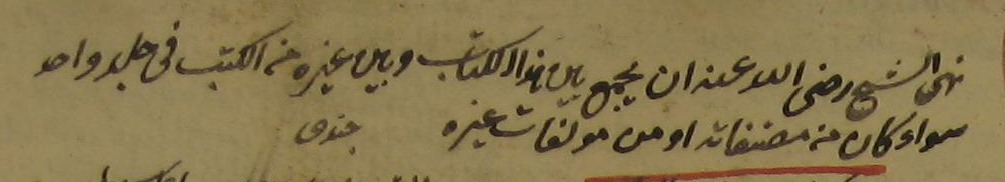 نهى الشيخ رضى الله عنه ان يجمع بين هذا الكتاب وبين غيره من الكتب فى جلد واحد
سواء كان من مصنفاته او من مولفات غيره جندى